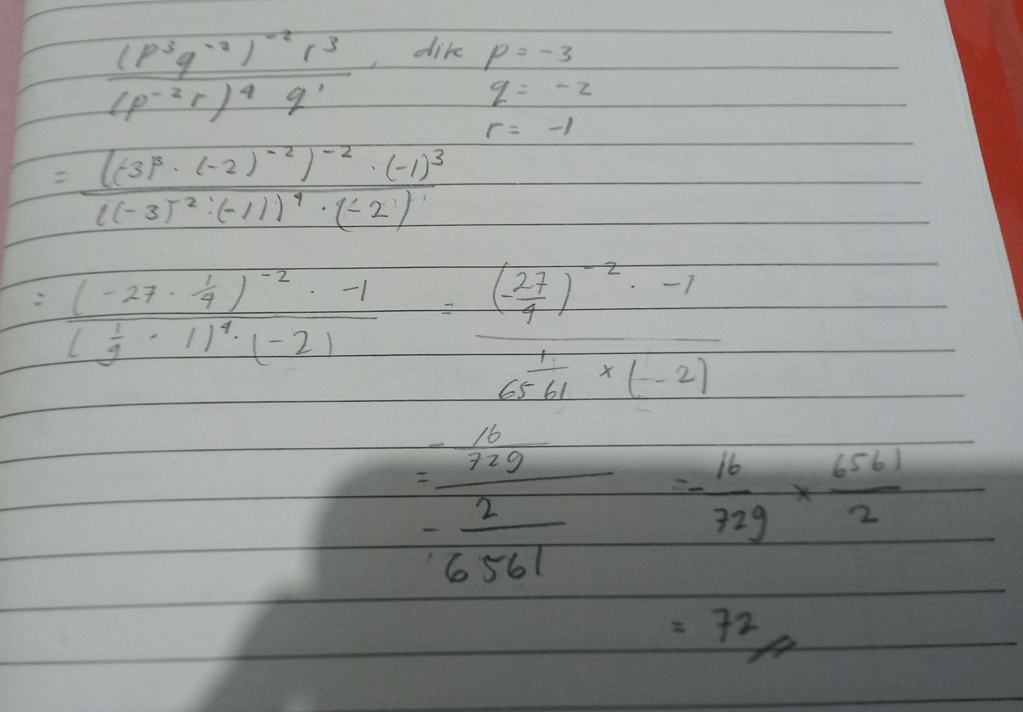 (p³q⁻²)⁻² r³ / (p⁻²r)⁴ q¹, dik p = -3
q = -2
r = -1
= ((-3)³ · (-2)⁻²)⁻² · (-1)³ / ((-3)⁻² · (-1))⁴ · (-2)¹
= (-27 · 1/4)⁻² · -1 / (1/9 · 1)⁴ · (-2) = (-27/4)⁻² · -1 / 1/6561 × (-2)
= -16/729 / -2/6561 = -16/729 × 6561/2
= 72